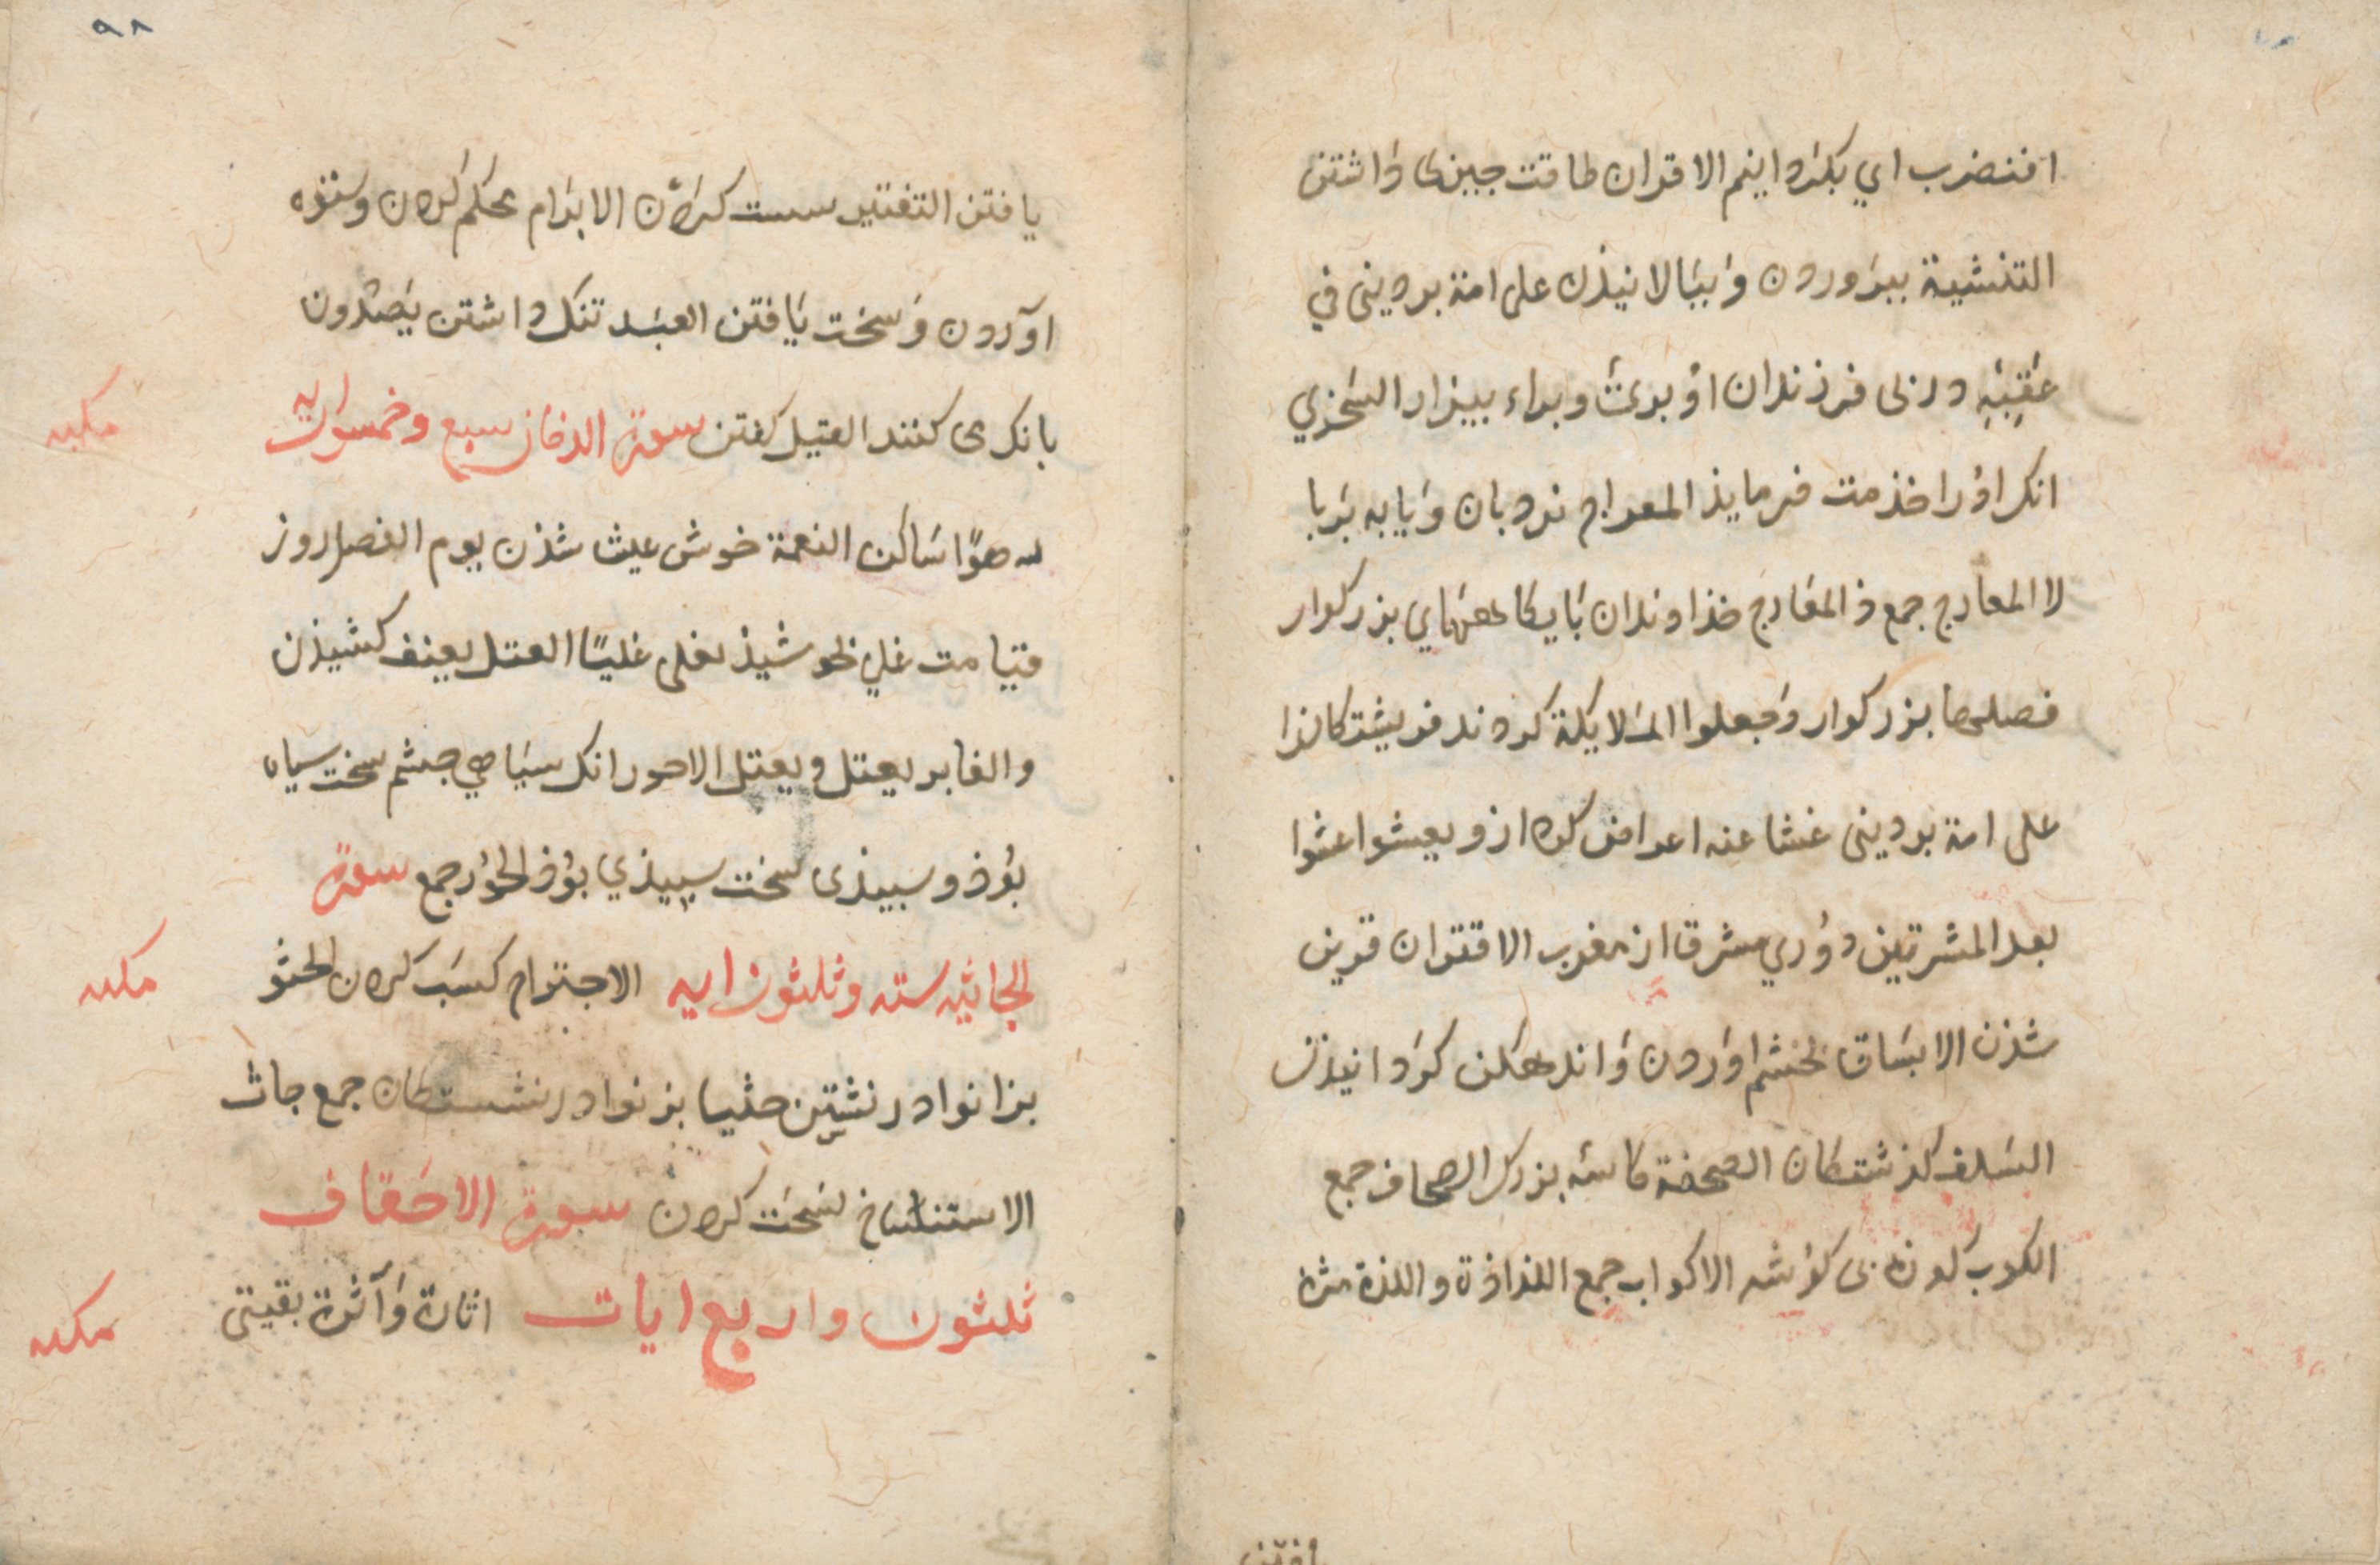 افنضرب اي بكردانيم الاقران طاقت جيزى داشتن
التنشية ببروردن وَ ببَالانيذن على امة بردينى في
عَقِبِهِ در نى فرزندان اؤ برئ وبراء بيزار السُخري
انكراوُرا خذمت فرمايذ المعراج نردبان وَ يابه بَربا
لا المعارج جمع ذ المعَارج خذاوندان بَايكاههَاي بزركوار
فصلها بزركوار وَجعلوا الملايكة كردند فريشتكانرا
على امة بردينى عشا عنه اعراض كرد ازو يعشوا عشوا
بعد المشرقين دوُري مشرق از مغرب الاقتران قرين
شذن الايسَاف بخشم اوَردن وَاندهكن كرَدانيذن
السَلف كذشتكان الصحفة كاسَه بزرك الصحاف جمع
الكوب كوزه بى كوُشه الاكواب جمع اللذاذة واللذة مزه
يافتن
٩٨
يافتن التفتير سست كرَدن الابرَام محكم كردن وستوه
اوَردن وَسخت يَافتن العبَد تنك داشتن يَصدون
بانك مى كنند القيل كفتن سورة الدخان سبع وخمسون ايه
مكيه
رهوًا سَاكن النعمة خوش عيش شذن يوم الفصل روز
قيامت غلي بجوشيذ يغلى غليًا العتل بعنف كشيذن
والغابر يعتل ويعتل الاحور انك سيَاهي جشم سخت سياه
بوُذ وسبيذى سخت سبيذي بوُذ الحوُر جمع سورة
الجاثيه سته وثلثون ايه الاجترام كسَب كردن الجثو
مكيه
بزانوا درنشتن جثيا بزنوا درنشستكان جمع جاث
الاستنساخ نسَخت كردن سورة الاحَقاف
ثلثون واربع ايات اثارة وَآثرة بقيتى
مكيه